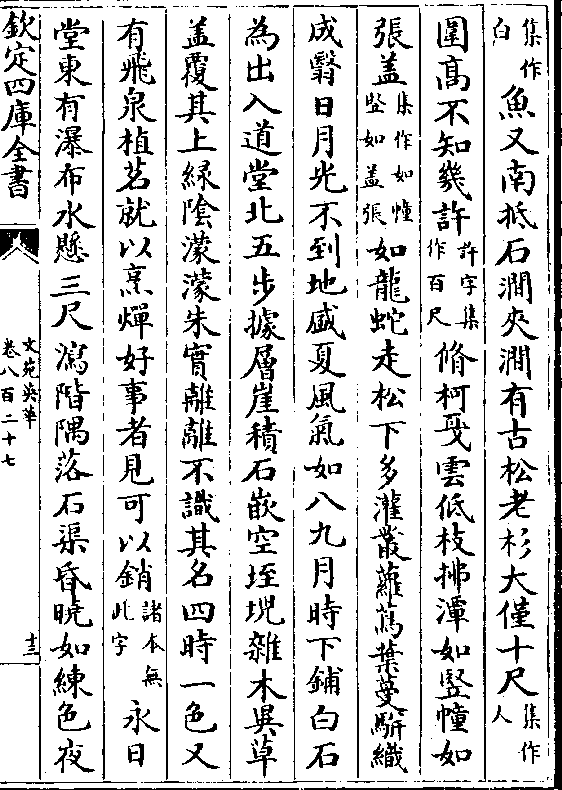 集作白魚又南抵石澗夾澗有古松老杉大僅十尺集作人
圍髙不知幾許許字集作百尺脩柯戛雲低枝拂潭如竪幢如
張盖集作如幢竪如盖張如龍蛇走松下多灌叢蘿蔦葉蔓駢織
成翳日月光不到地盛夏風氣如八九月時下鋪白石
為出入道堂北五步據層崖積石嵌空垤堄雜木異草
盖覆其上綠陰濛濛朱實離離不識其名四時一色又
有飛泉植茗就以烹燀好事者見可以銷諸本無此字永日
堂東有瀑布水懸三尺瀉階隅落石渠昏曉如練色夜
欽定四庫全書
文苑英華
卷八百二十七
十三